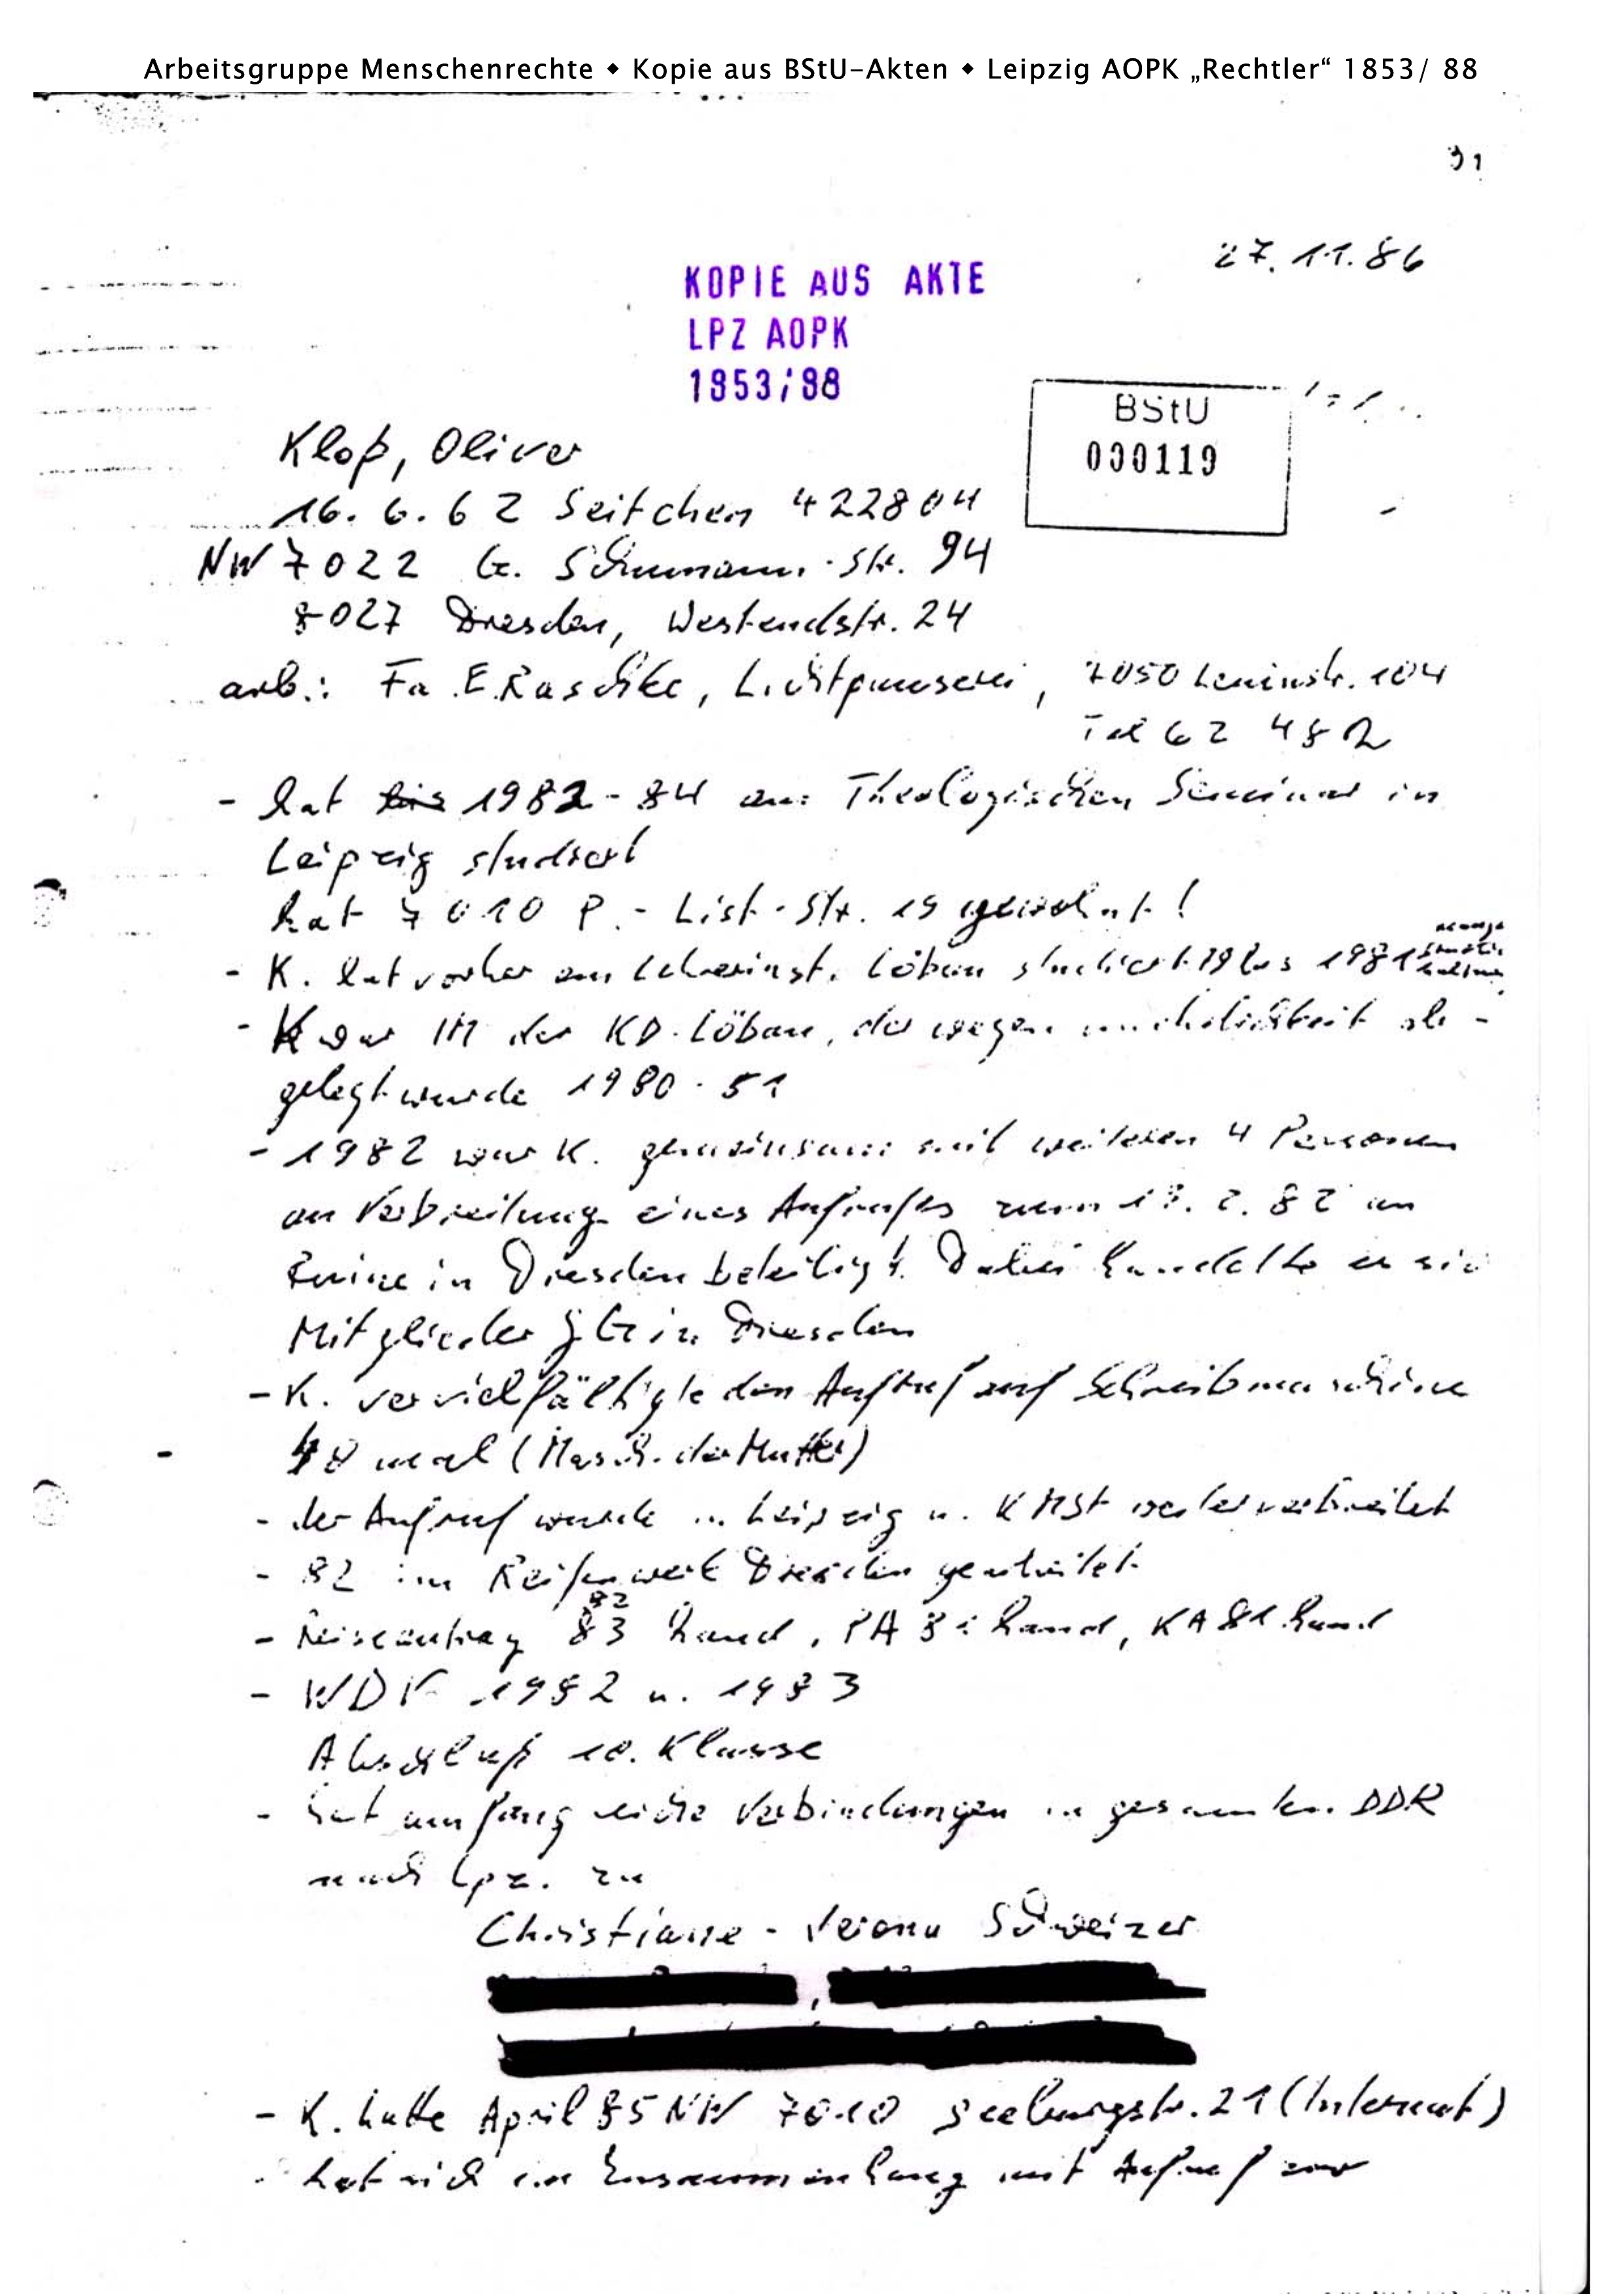 Arbeitsgruppe Menschenrechte ◆ Kopie aus BStU-Akten ◆ Leipzig AOPK „Rechtler“ 1853/ 88
31
27.11.86
KOPIE AUS AKTE
LPZ AOPK
1853/88
BStU
000119
Kloß, Oliver
16.6.62 Seitchen 422804
NW 7022 G. Schumann-Str. 94
8027 Dresden, Westendstr. 24
arb.: Fa. E. Raschke, Lichtpauserei, 7050 Leninstr. 104
Tel 62 482
- hat bis 1982-84 am Theologischen Seminar in
Leipzig studiert
hat 7010 P.-List-Str. 19 gewohnt!
- K. hat vorher am Lehrerinst. Löbau studiert 79 bis 1981
- K war IM der KD Löbau, der wegen unehrlichkeit ab-
gelegt wurde 1980-81
- 1982 war K. gemeinsam mit weiteren 4 Personen
an Verbreitung eines Aufrufes zum 13.2.82 an
Ruine in Dresden beteiligt. Dabei handelte es sich
Mitglieder JG in Dresden
- K. vervielfältigte den Aufruf auf Schreibmaschine
48 mal (Masch. der Mutter)
- der Aufruf wurde in Leipzig u. KMSt weiterverbreitet
- 82 im Reifenwerk Dresden gearbeitet
- Reiseantrag 83 82 hand, PA hand, KA 81 hand
- WDV 1982 u. 1983
Abschluß 10. Klasse
- hat umfangreiche Verbindungen in gesamten DDR
nach Lpz. zu
Christiane-Verona Schweizer
- K. hatte April 85 NW 7010 Seeburgstr. 21 (Internat)
- hat sich im Zusammenhang mit Aufruf zur